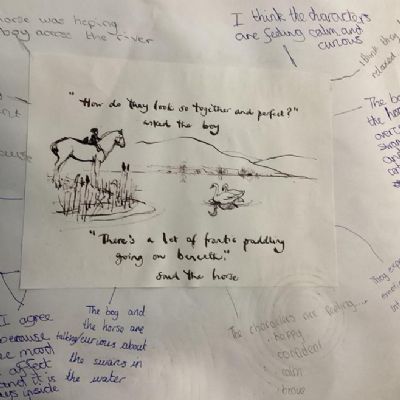 horse was heping
boy across the river
I think the charactors
are feeling calm and
curious
I think they
relaxed
"How do they look so together and perfect?"
asked the boy
"There's a lot of frantic paddling
going on beneath."
said the horse
The bo
the ho
over
and
I agree
because
mood
affect
and it is
inside
The boy and
the horse are
talking/curious about
the swans in
the water
The charactors are feeling...
happy
confident
calm
brave
They